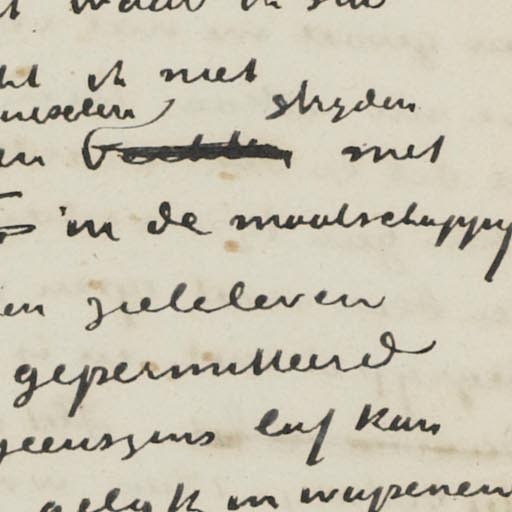 waar ik
ik met
strijden
en met
in de maatschappij
en zieleleven
gepermitteerd
geenszins laf kan
gelijk in wapenen